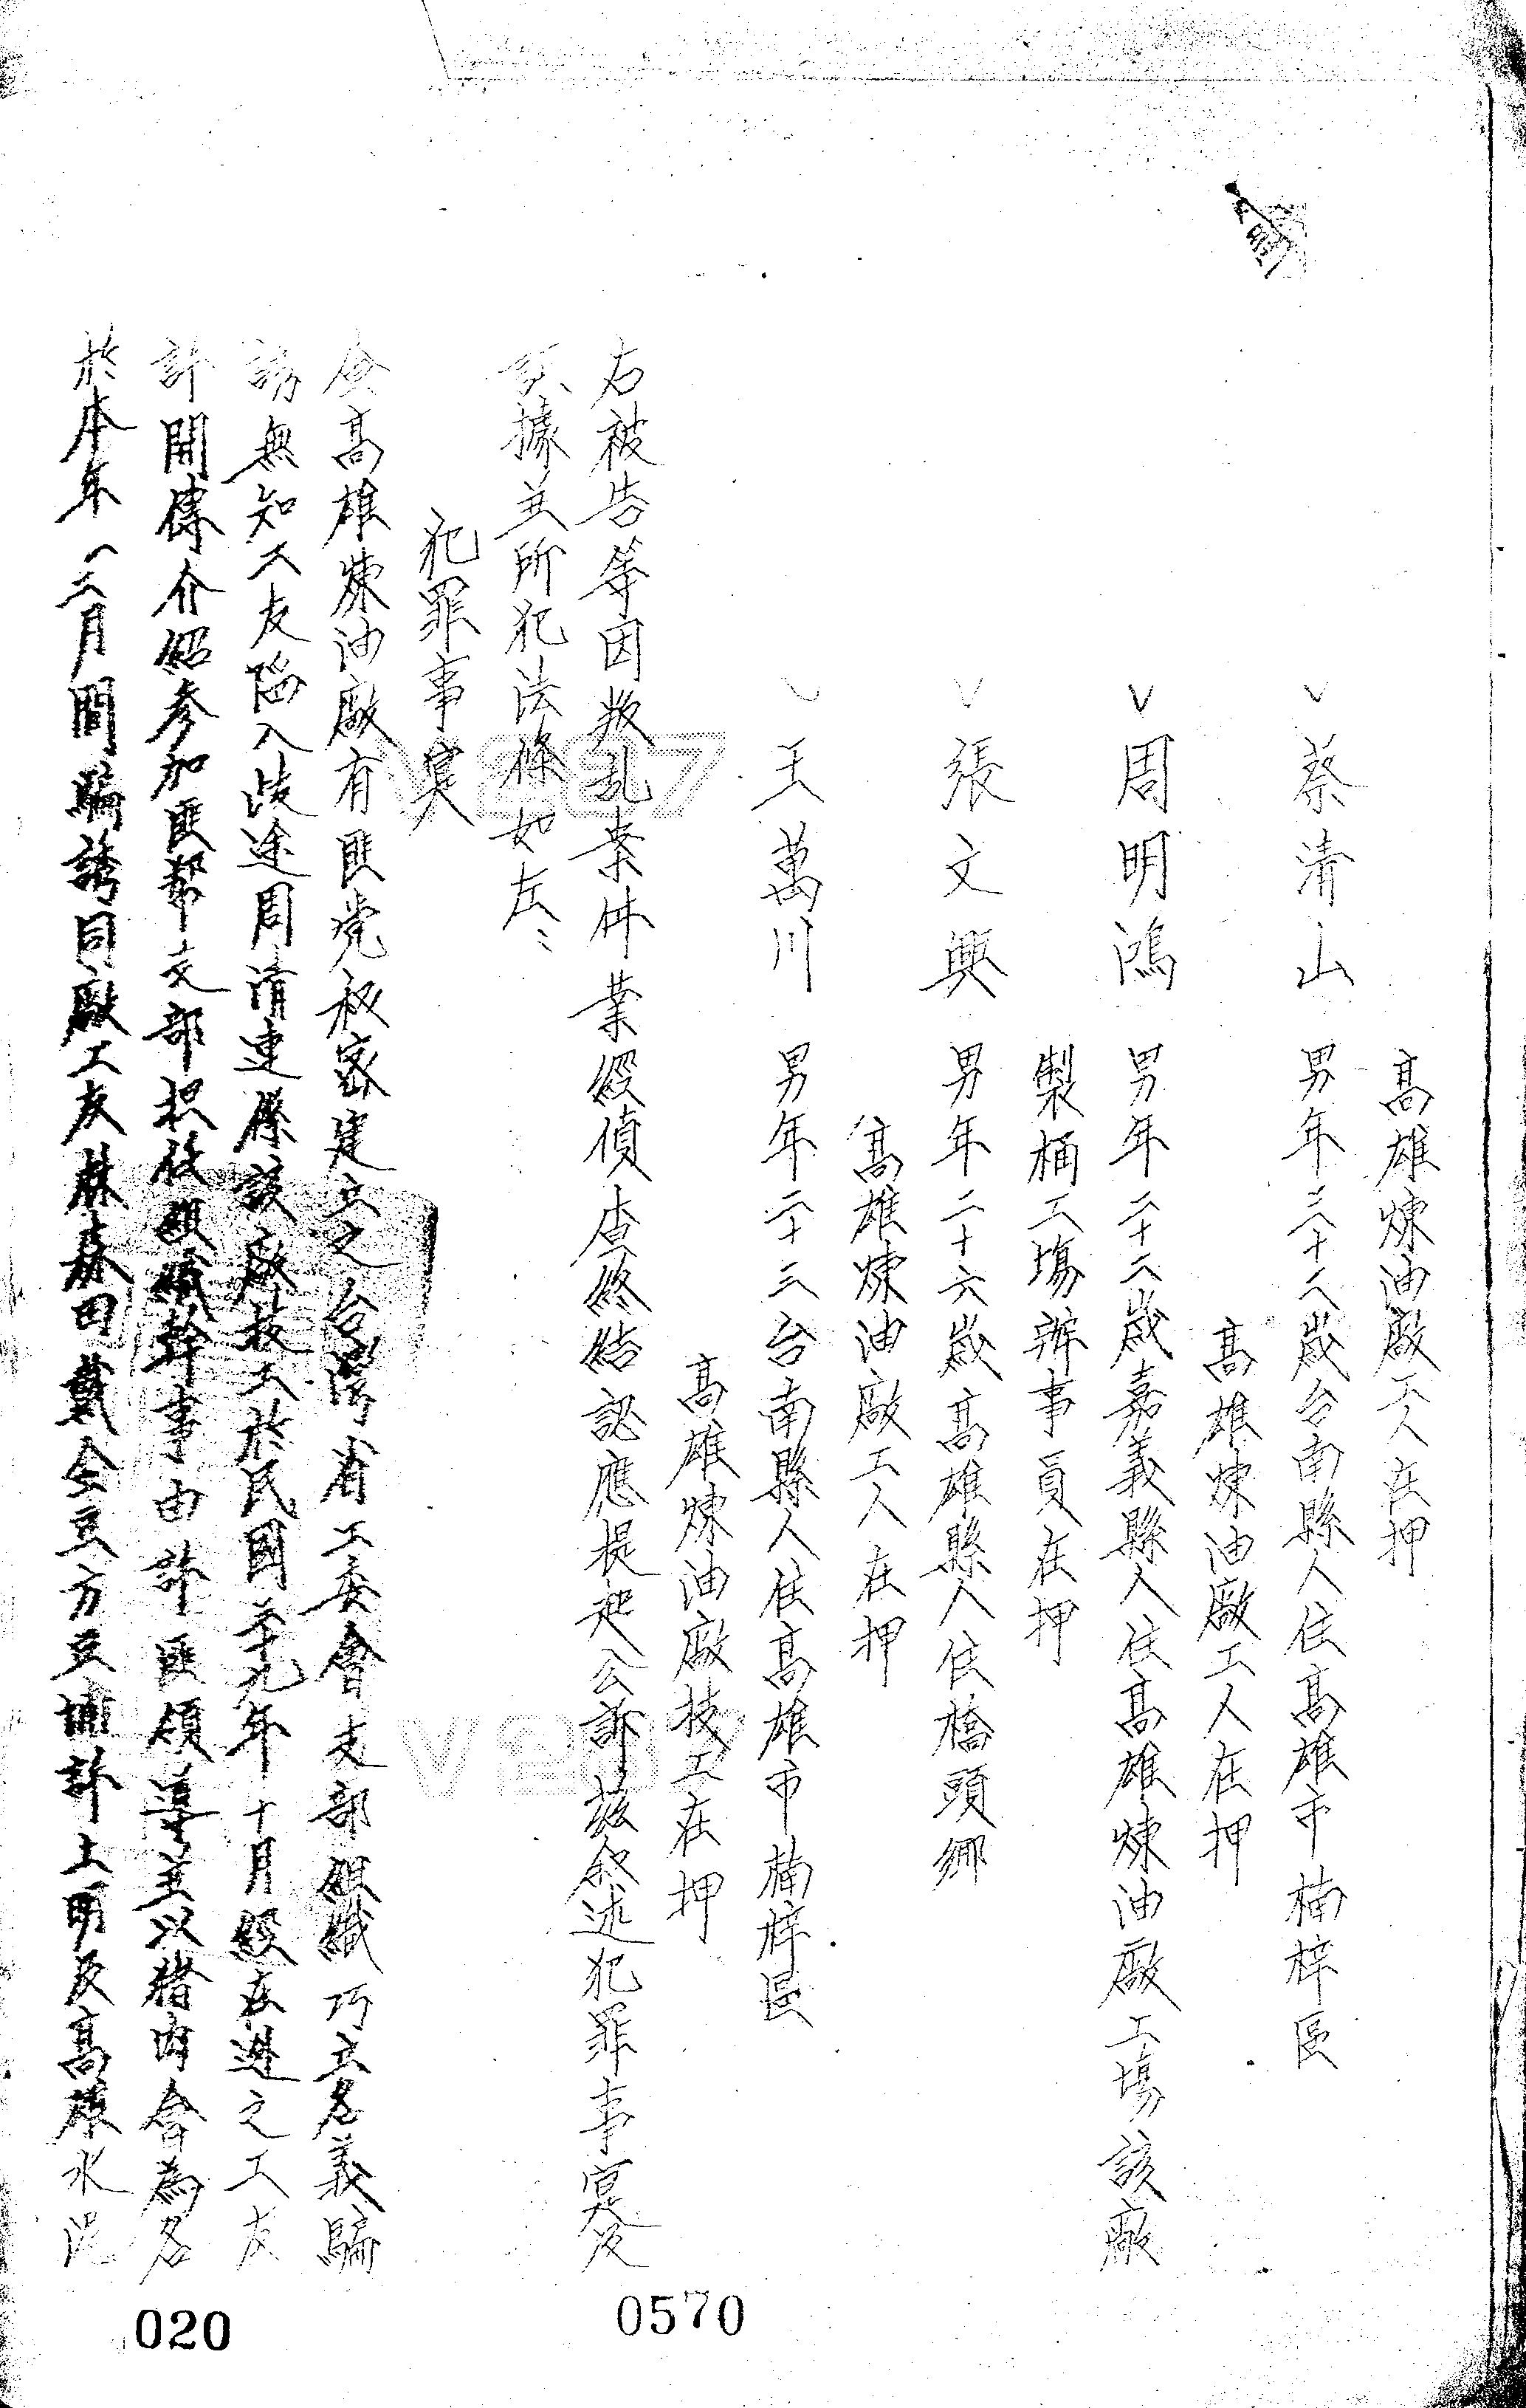 高雄煉油廠工人在押
∨蔡清山 男年三十二歲台南縣人住高雄市楠梓區
高雄煉油廠工人在押
∨周明鴻 男年二十二歲嘉義縣人住高雄煉油廠工場該廠
製桶工場辦事員在押
∨張文興 男年二十六歲高雄縣人住橋頭鄉
高雄煉油廠工人在押
∨王萬川 男年二十三台南縣人住高雄市楠梓區
高雄煉油廠技工在押
右被告等因叛乱案件業經偵查終結認應提起公訴茲敘述犯罪事实及
証據並所犯法條如左:
犯罪事实
高雄煉油廠有匪党秘密建立之台灣省工委會支部組織巧立名義騙
誘無知工友陷入歧途周清連係該廠技工於民國三十九年十月經在逃之工友
許開傳介紹參加匪幫支部担任組織幹事由許匪領導並以豬肉會為名
於本年一二月間騙誘同廠工友林森田戴金豆方豆埔許土明及高雄水泥
V287
V287
0570
020